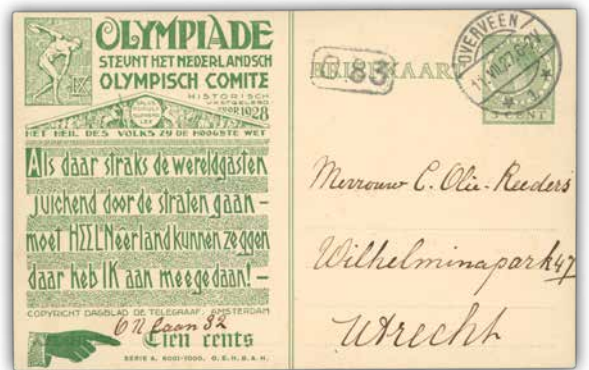 OLYMPIADE
STEUNT HET NEDERLANDSCH
OLYMPISCH COMITE
IX
HISTORISCH
VOOR 1928
HET HEIL DES VOLKS ZY DE HOOGSTE WET
Als daar straks de wereldgasten
juichend door de straten gaan –
moet HEEL Neerland kunnen zeggen
daar heb IK aan meegedaan! –
COPYRIGHT DAGBLAD DE TELEGRAAF. AMSTERDAM
laan 32
Tien cents
SERIE A. 6001-7000. O.E.H.B.A.H.
BRIEFKAART
C.83
OVERVEEN
5 CENT
Mevrouw C. Olie-Reeders
Wilhelminapark 47
Utrecht